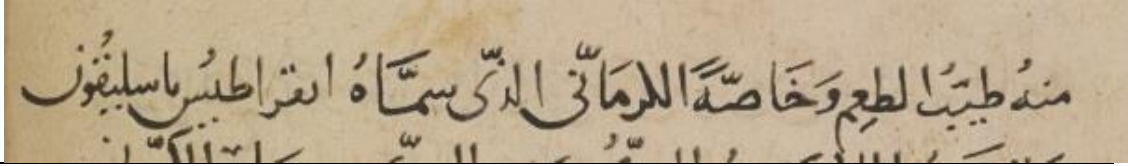 منهُ طيّبُ الطعِم وَخَاصّهً اللرمَانّى الذّى سمَّاهُ ابقراطيُس باسليقُون